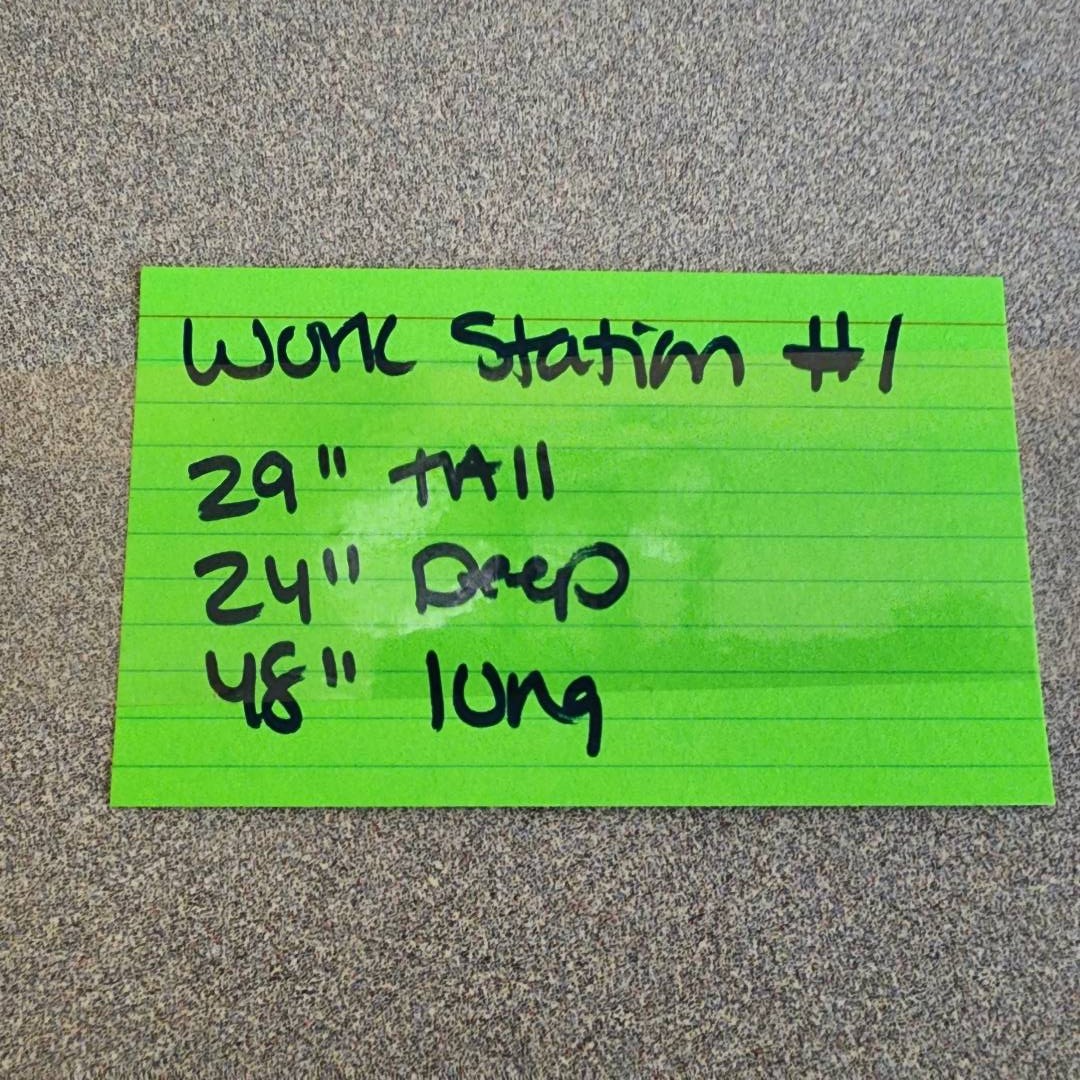 Work Station #1
29" TAll
24" Deep
48" long